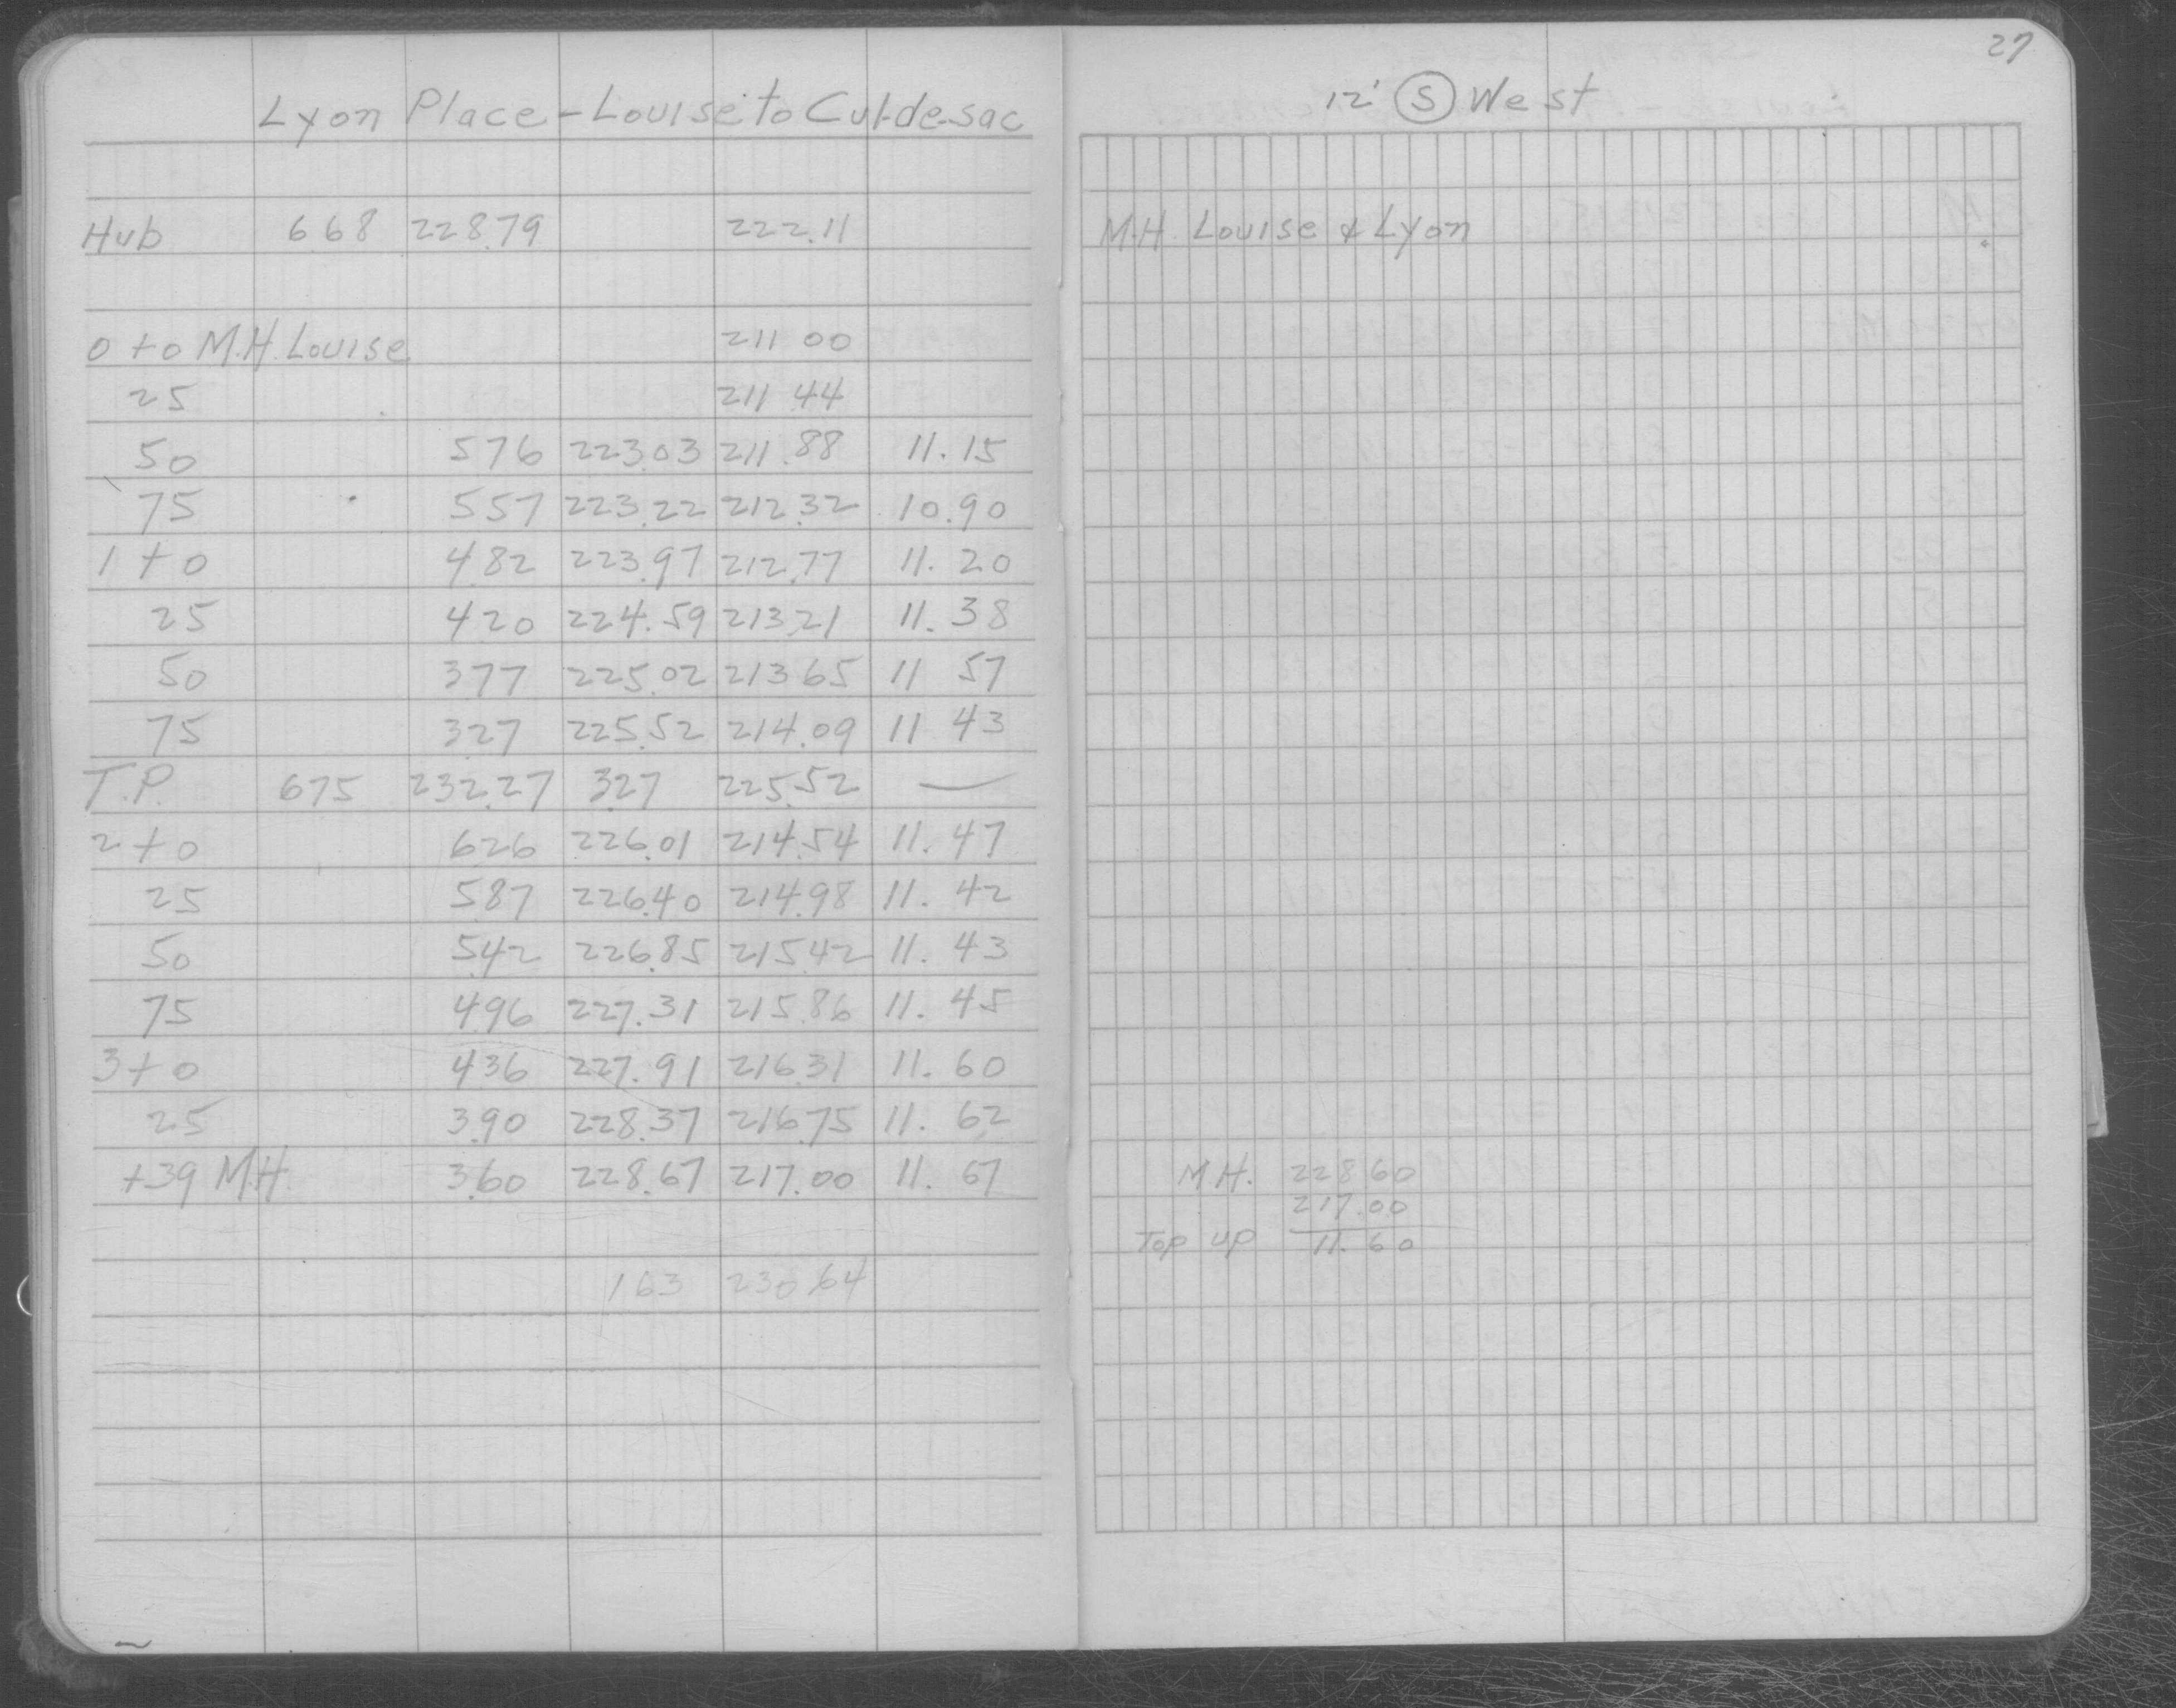 27
Lyon Place - Louise to Cul-de-sac
12' (S) West
Hub 668 228.79 222.11
M.H. Louise & Lyon
0 + 0 M.H. Louise 211 00
25 211 44
50 576 223.03 211.88 11.15
75 557 223.22 212.32 10.90
1 + 0 482 223.97 212.77 11.20
25 420 224.59 213.21 11.38
50 377 225.02 213 65 11 57
75 327 225.52 214.09 11 43
T.P. 675 232.27 327 225.52 —
2 + 0 626 226.01 214.54 11.47
25 587 226.40 214.98 11.42
50 542 226.85 215.42 11.43
75 496 227.31 215.86 11.45
3 + 0 436 227.91 216.31 11.60
25 3.90 228.37 216.75 11.62
+39 M.H. 3.60 228.67 217.00 11.67
M.H. 228 60
217.00
Top up 11.60
163 230.64